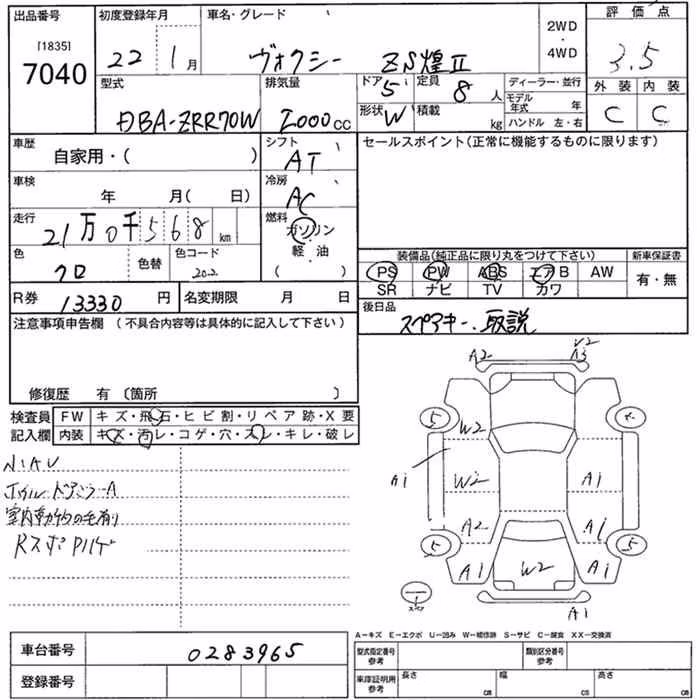 出品番号 初度登録年月 車名・グレード 評価点
[1835] 7040 22 1月 ヴォクシー ZS煌II 2WD・4WD 3.5
型式 排気量 ドア 定員 ディーラー・並行 外装 内装
DBA-ZRR70W 2000cc 5 8人 モデル年式 年 C C
形状 W 積載 kg ハンドル 左・右
車歴 自家用・( ) シフト AT セールスポイント(正常に機能するものに限ります)
車検 年 月( 日) 冷房 AC
走行 21万0千568km 燃料 ガソリン・軽油 ( )
色 クロ 色替 色コード 202
装備品(純正品に限り丸をつけて下さい) 新車保証書
PS PW ABS エアB AW 有・無
SR ナビ TV カワ
R券 13330円 名変期限 月 日
後日品 スペアキー、取説
注意事項申告欄 (不具合内容等は具体的に記入して下さい)
修復歴 有 〔箇所 〕
検査員記入欄 FW キズ・飛石・ヒビ割・リペア跡・X要
内装 キズ・汚レ・コゲ・穴・スレ・キレ・破レ
室内動物の毛有り
A2 V2 A3
5
W2
A1 W2 A1
A2 A1
5 5
A1 W2 A1
スペア A1
A−キズ E−エクボ U−凹み W−補修跡 S−サビ C−腐食 XX−交換済
車台番号 0283965 型式指定番号 参考 類別区分番号 参考
登録番号 車庫証明用 参考 長さ cm 幅 cm 高さ cm